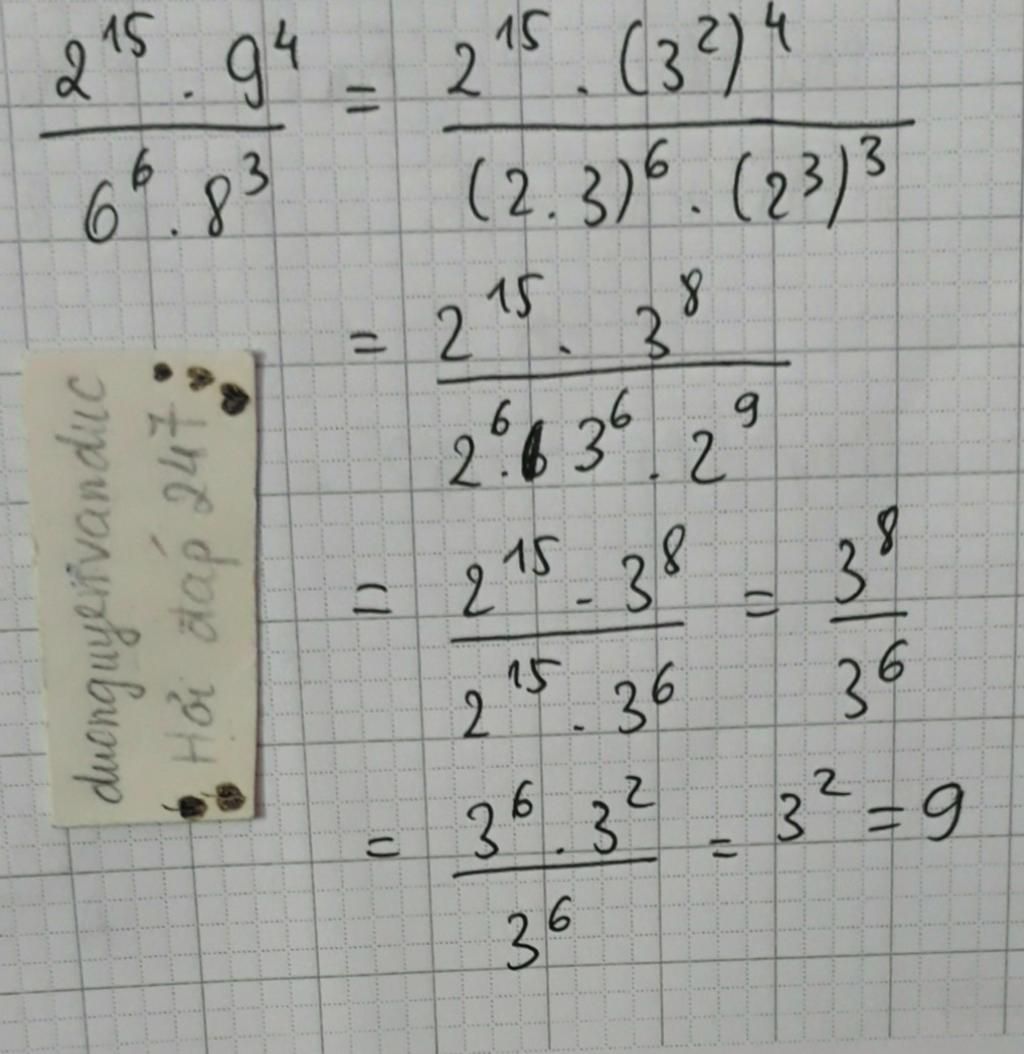 2^15 . 9^4 / 6^6 . 8^3 = 2^15 . (3^2)^4 / (2 . 3)^6 . (2^3)^3
= 2^15 . 3^8 / 2^6 . 3^6 . 2^9
= 2^15 . 3^8 / 2^15 . 3^6 = 3^8 / 3^6
= 3^6 . 3^2 / 3^6 = 3^2 = 9
duonguyenvanduc
Hỏi đáp 247